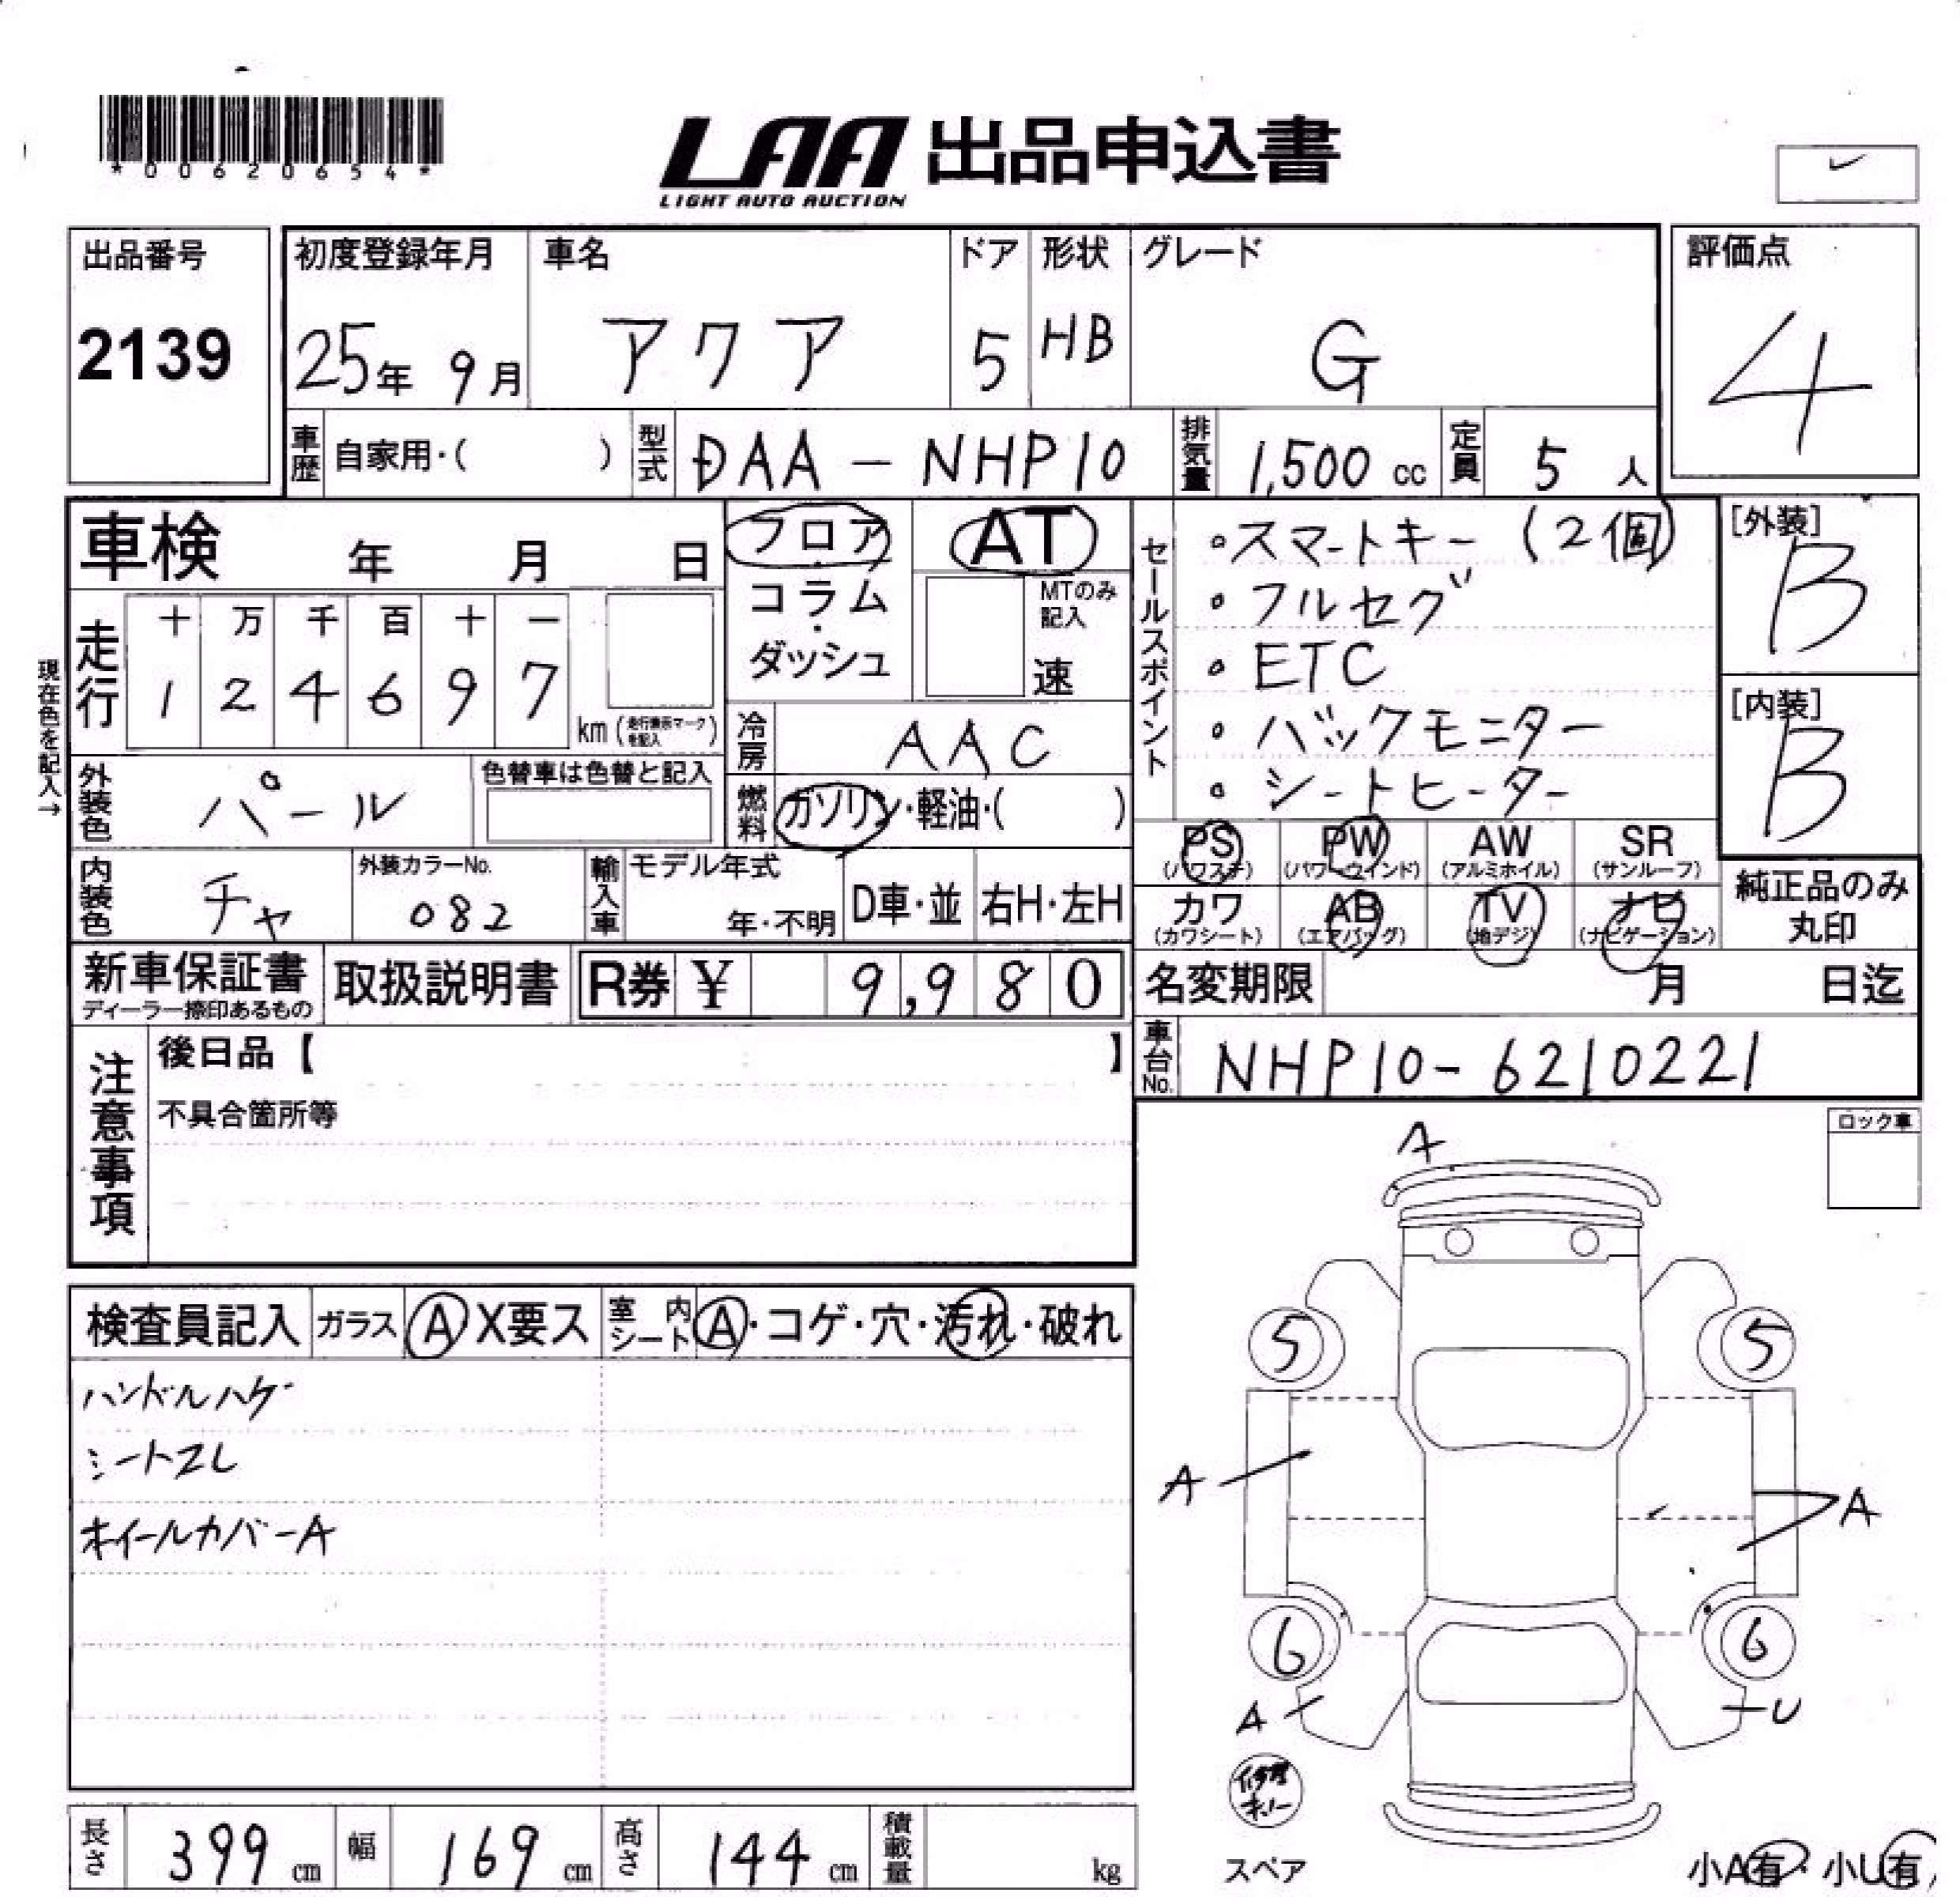 *00620654*
LAA 出品申込書
LIGHT AUTO AUCTION
出品番号
2139
初度登録年月
25年 9月
車名
アクア
ドア
5
形状
HB
グレード
G
評価点
4
車歴 自家用・( )
型式 DAA-NHP10
排気量 1,500 cc
定員 5 人
車検 年 月 日
フロア・コラム・ダッシュ
AT
MTのみ記入
速
セールスポイント
・スマートキー(2個)
・フルセグ
・ETC
・バックモニター
・シートヒーター
[外装]
B
[内装]
B
現在色を記入→
走行
十 万 千 百 十 一
1 2 4 6 9 7
km (走行換示マークを記入)
冷房 AAC
外装色 パール
色替車は色替と記入
燃料 ガソリン・軽油・( )
PS (パワステ)
PW (パワーウインド)
AW (アルミホイル)
SR (サンルーフ)
内装色 チャ
外装カラーNo. 082
輸入車
モデル年式
年・不明
D車・並
右H・左H
カワ (カワシート)
AB (エアバッグ)
TV (地デジ)
ナビ (ナビゲーション)
純正品のみ丸印
新車保証書
ディーラー捺印あるもの
取扱説明書
R券 ¥ 9,980
名変期限 月 日迄
車台No. NHP10-6210221
注意事項
後日品【 】
不具合箇所等
ロック車
検査員記入
ガラス A X要ス
室内シート A・コゲ・穴・汚れ・破れ
ハンドルハゲ
シートスレ
ホイールカバーA
A
5
5
A
A
6
6
A
U
修理キー
スペア
小A有・小U有
長さ 399 cm
幅 169 cm
高さ 144 cm
積載量 kg